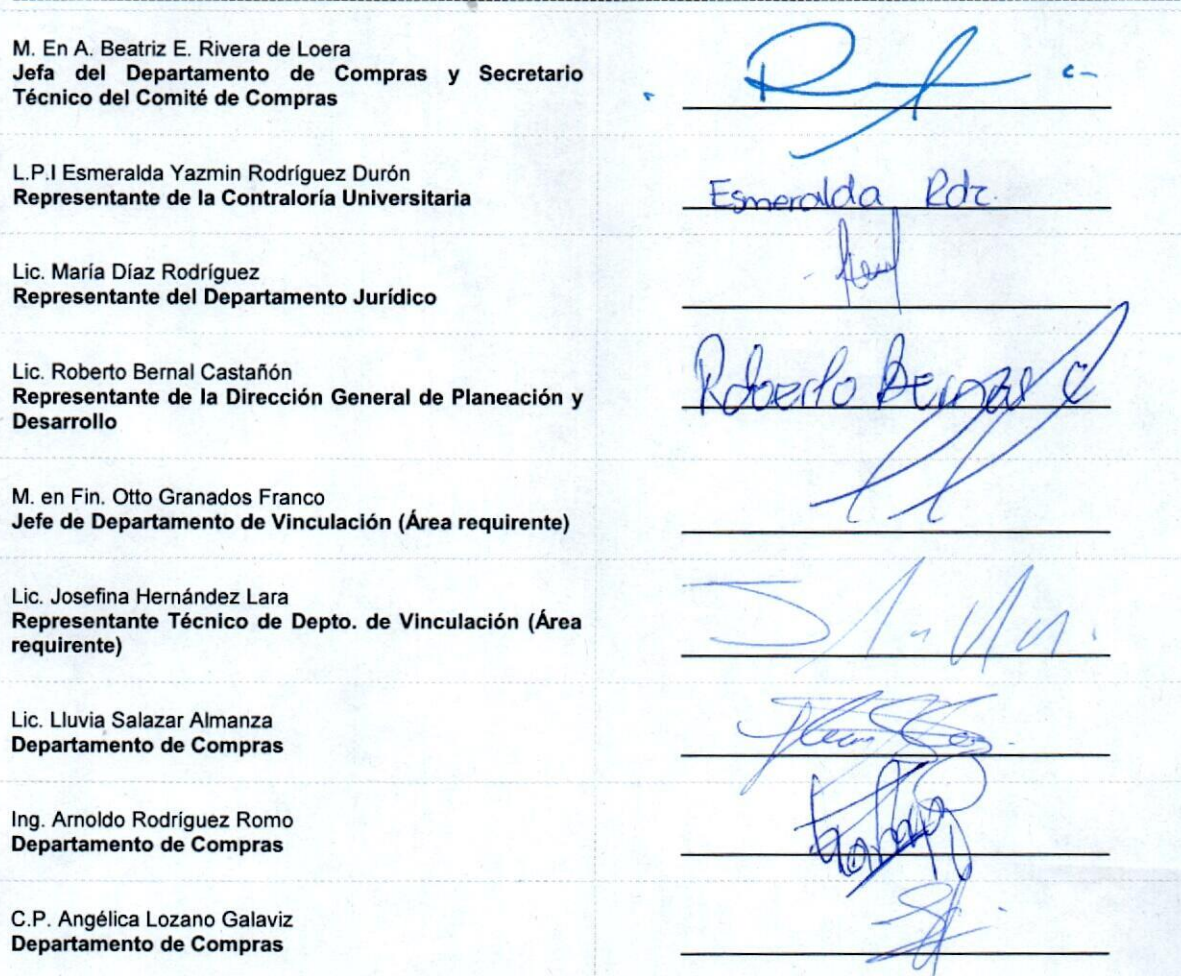 M. En A. Beatriz E. Rivera de Loera
Jefa del Departamento de Compras y Secretario
Técnico del Comité de Compras
L.P.I Esmeralda Yazmin Rodríguez Durón
Representante de la Contraloría Universitaria
Esmeralda Rdz.
Lic. María Díaz Rodríguez
Representante del Departamento Jurídico
Lic. Roberto Bernal Castañón
Representante de la Dirección General de Planeación y
Desarrollo
Roberto Bernal C
M. en Fin. Otto Granados Franco
Jefe de Departamento de Vinculación (Área requirente)
Lic. Josefina Hernández Lara
Representante Técnico de Depto. de Vinculación (Área
requirente)
Lic. Lluvia Salazar Almanza
Departamento de Compras
Ing. Arnoldo Rodríguez Romo
Departamento de Compras
C.P. Angélica Lozano Galaviz
Departamento de Compras